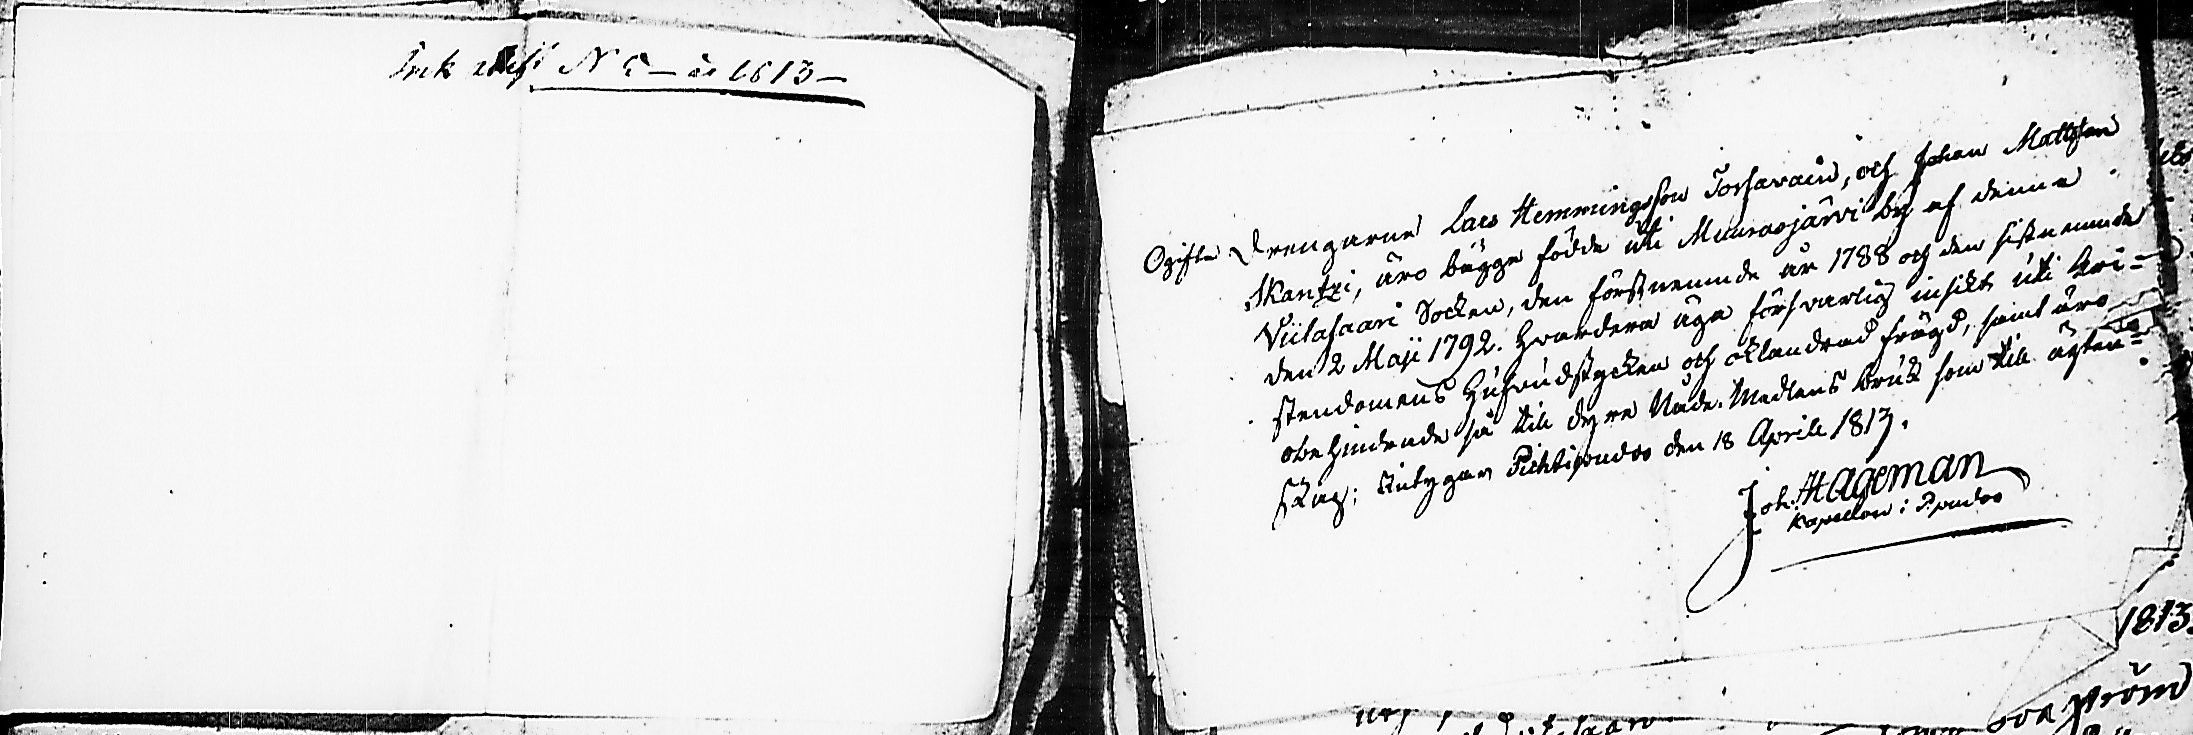 Ink attest N 5 – år 1813 –
Ogifte Drengarne Lars Hemmingsson Torfvain, och Johan Mattsson
Skantzi, äro bägge födde uti Muurasjärvi by af denna
Viitasaari Socken, den förstnemnde år 1788 och den sistnemnde
den 2 Maji 1792. Hvardera äga försvarlig insikt uti kri-
stendomens hufvudstycken och oklandrad frägd, samt äro
obehindrade så till dyra Nåde-Medlens bruk som till ägten-
skap; Intygar Pichtipudas den 18 Aprill 1813.
Joh. Hageman
Kapellan i Ppudas
1813.